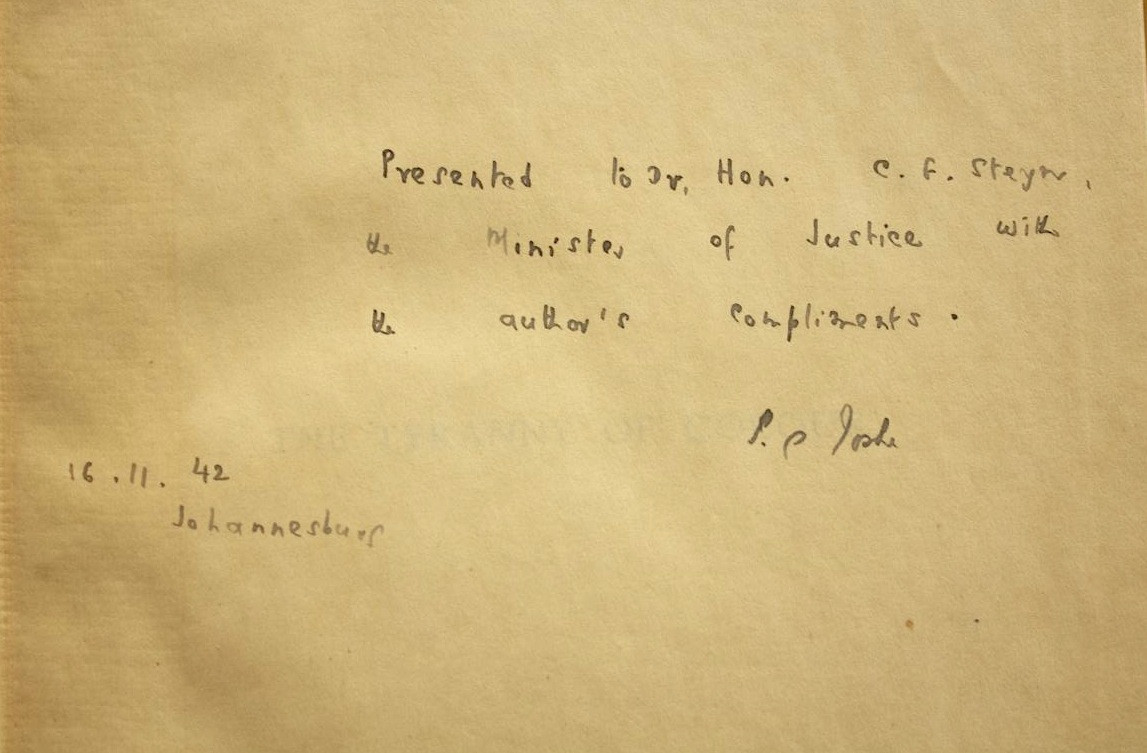 Presented to Dr, Hon. C. F. Steyn,
the Minister of Justice with
the author's compliments.
P. S Joshi
16.11.42
Johannesburg
THE TYRANNY OF COLOUR